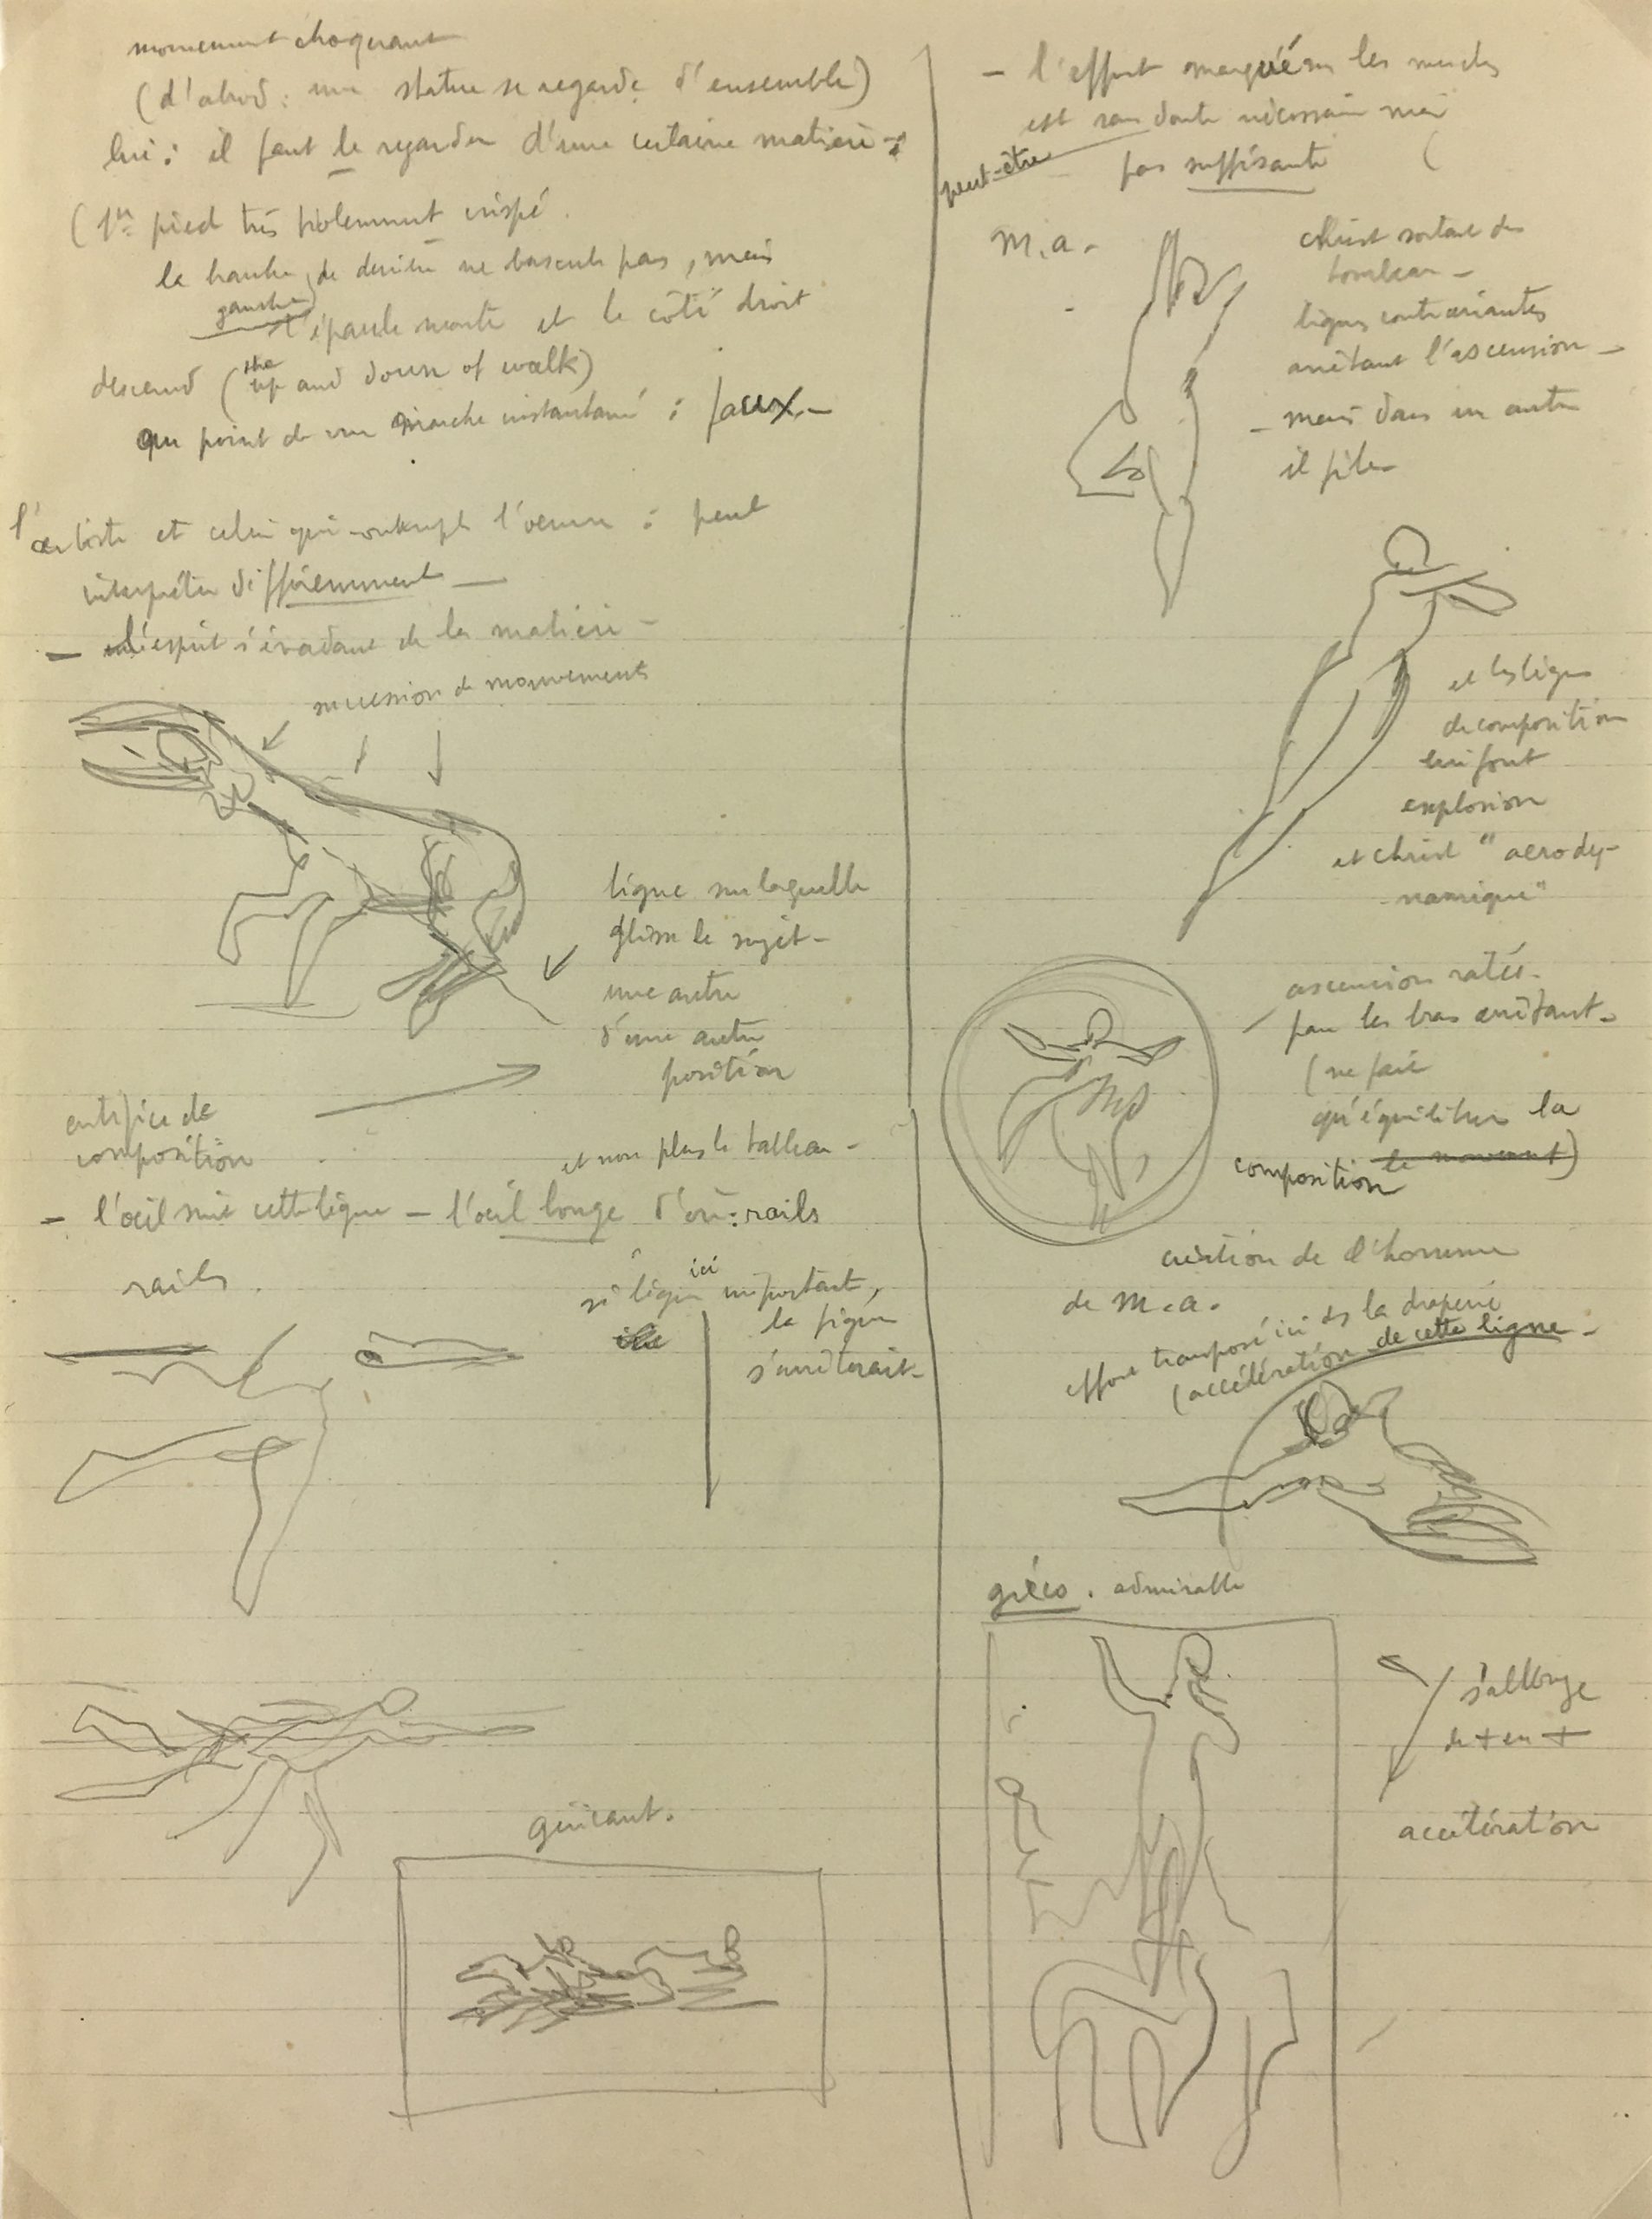 mouvement choquant
(d'abord : une statue se regarde d'ensemble)
lui : il faut le regarder d'une certaine matière -
( pied très violemment crispé.
la hanche de derrière ne bascule pas, mais
gauche
l'épaule monte et le côté droit
descend (the up and down of walk)
au point de vue marche instantané : faux -
l'artiste et celui qui contemple l'œuvre : peut
interpréter différemment -
- l'esprit s'évadant de la matière -
succession de mouvements
ligne sur laquelle
glisse le sujet -
une autre
d'une autre
position
artifice de
composition
et non plus le tableau -
- l'œil suit cette ligne - l'œil longe d'où : rails
rails
si ligne ici important,
la figure
s'arrêterait -
géricault.
- l'effort marqué sur les muscles
est sans doute nécessaire mais
peut-être
pas suffisante (
m. a -
christ sortant du
tombeau -
lignes contrariantes
arrêtant l'ascension -
- mais dans un autre
il file -
et les lignes
de composition
lui font
explosion
et christ "aerody-
namique"
ascension ratée -
par les bras arrêtant -
(ne fait
qu'équilibrer la
composition le mouvement)
création de l'homme
de m. a.
effort transposé ici ds la draperie
(accélération de cette ligne -
gréco. admirable
s'allonge
de + en +
accélération